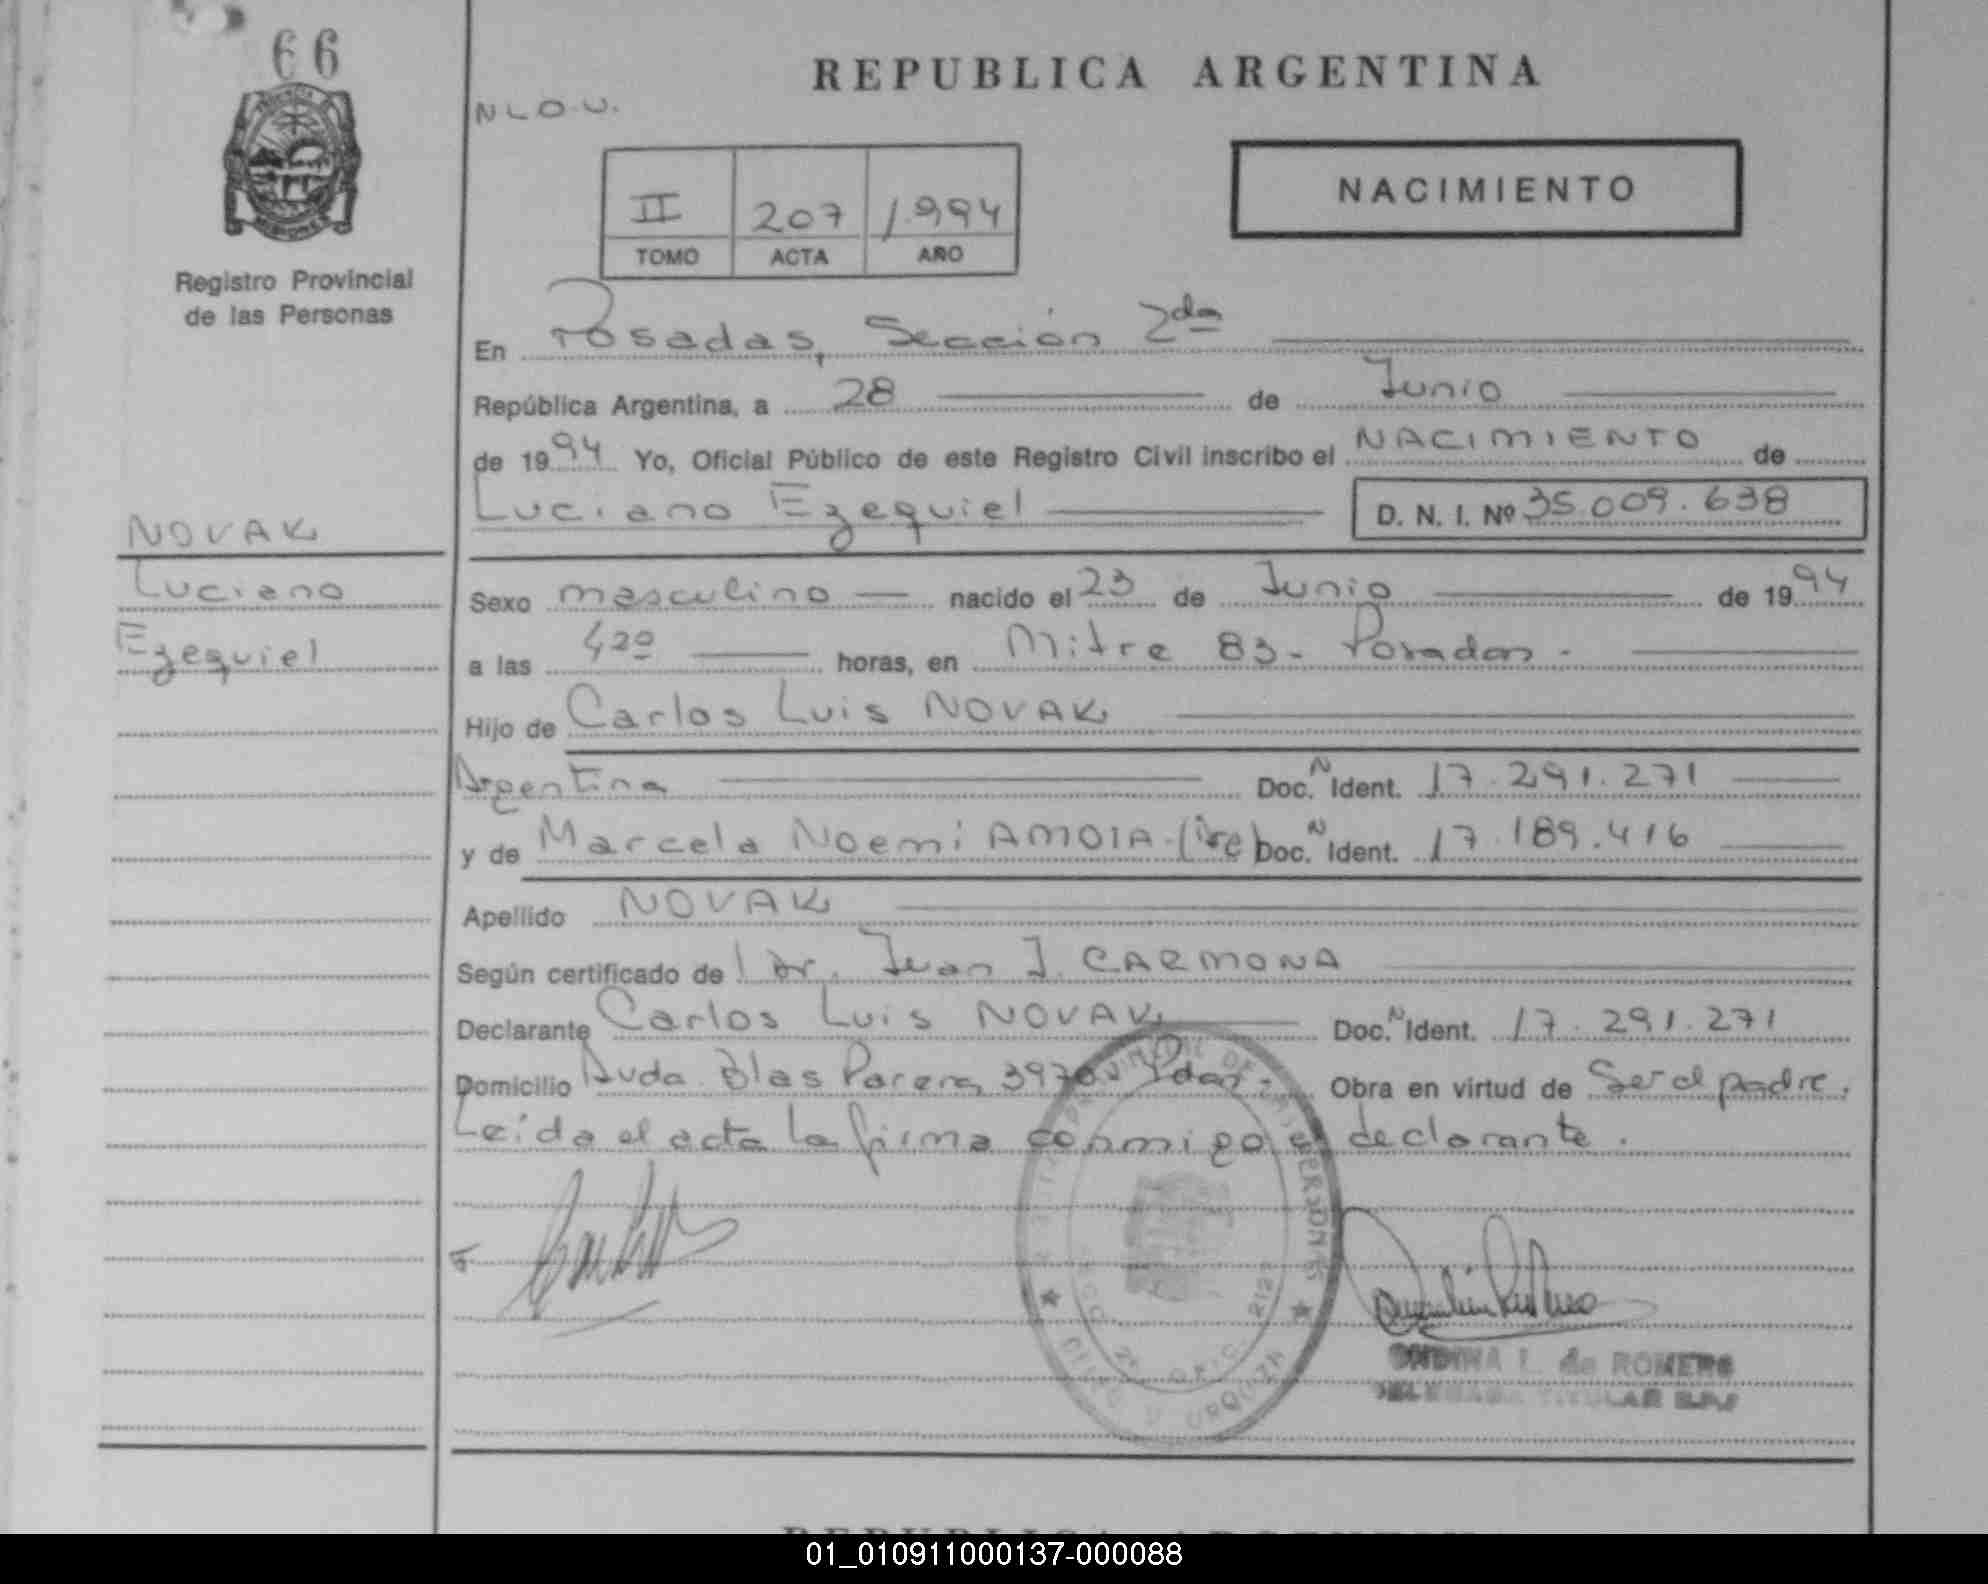 66
REPUBLICA ARGENTINA
N L O U.
NACIMIENTO
II 207 1994
TOMO ACTA AÑO
Registro Provincial
de las Personas
En Posadas, Sección 2da
República Argentina, a 28 de Junio
de 1994 Yo, Oficial Público de este Registro Civil inscribo el NACIMIENTO de
Luciano Ezequiel D. N. I. Nº 35.009.638
NOVAK
Luciano
Ezequiel
Sexo masculino nacido el 23 de Junio de 1994
a las 4 20 horas, en Mitre 83 - Posadas -
Hijo de Carlos Luis NOVAK
Argentina Doc. N Ident. 17.291.271
y de Marcela Noemí AMOIA Doc. N Ident. 17.189.416
Apellido NOVAK
Según certificado de Dr. Juan J. CARMONA
Declarante Carlos Luis NOVAK Doc. N Ident. 17.291.271
Domicilio Avda. Blas Parera Pdas - Obra en virtud de Ser el padre.
Leída el acta la firma conmigo el declarante.
PROVINCIAL DE LAS PERSONAS
SECC. 2ª OFIC. 212
URQUIZA
ONDINA L. de ROMERO
DELEGADA TITULAR
REPUBLICA ARGENTINA
01_010911000137-000088